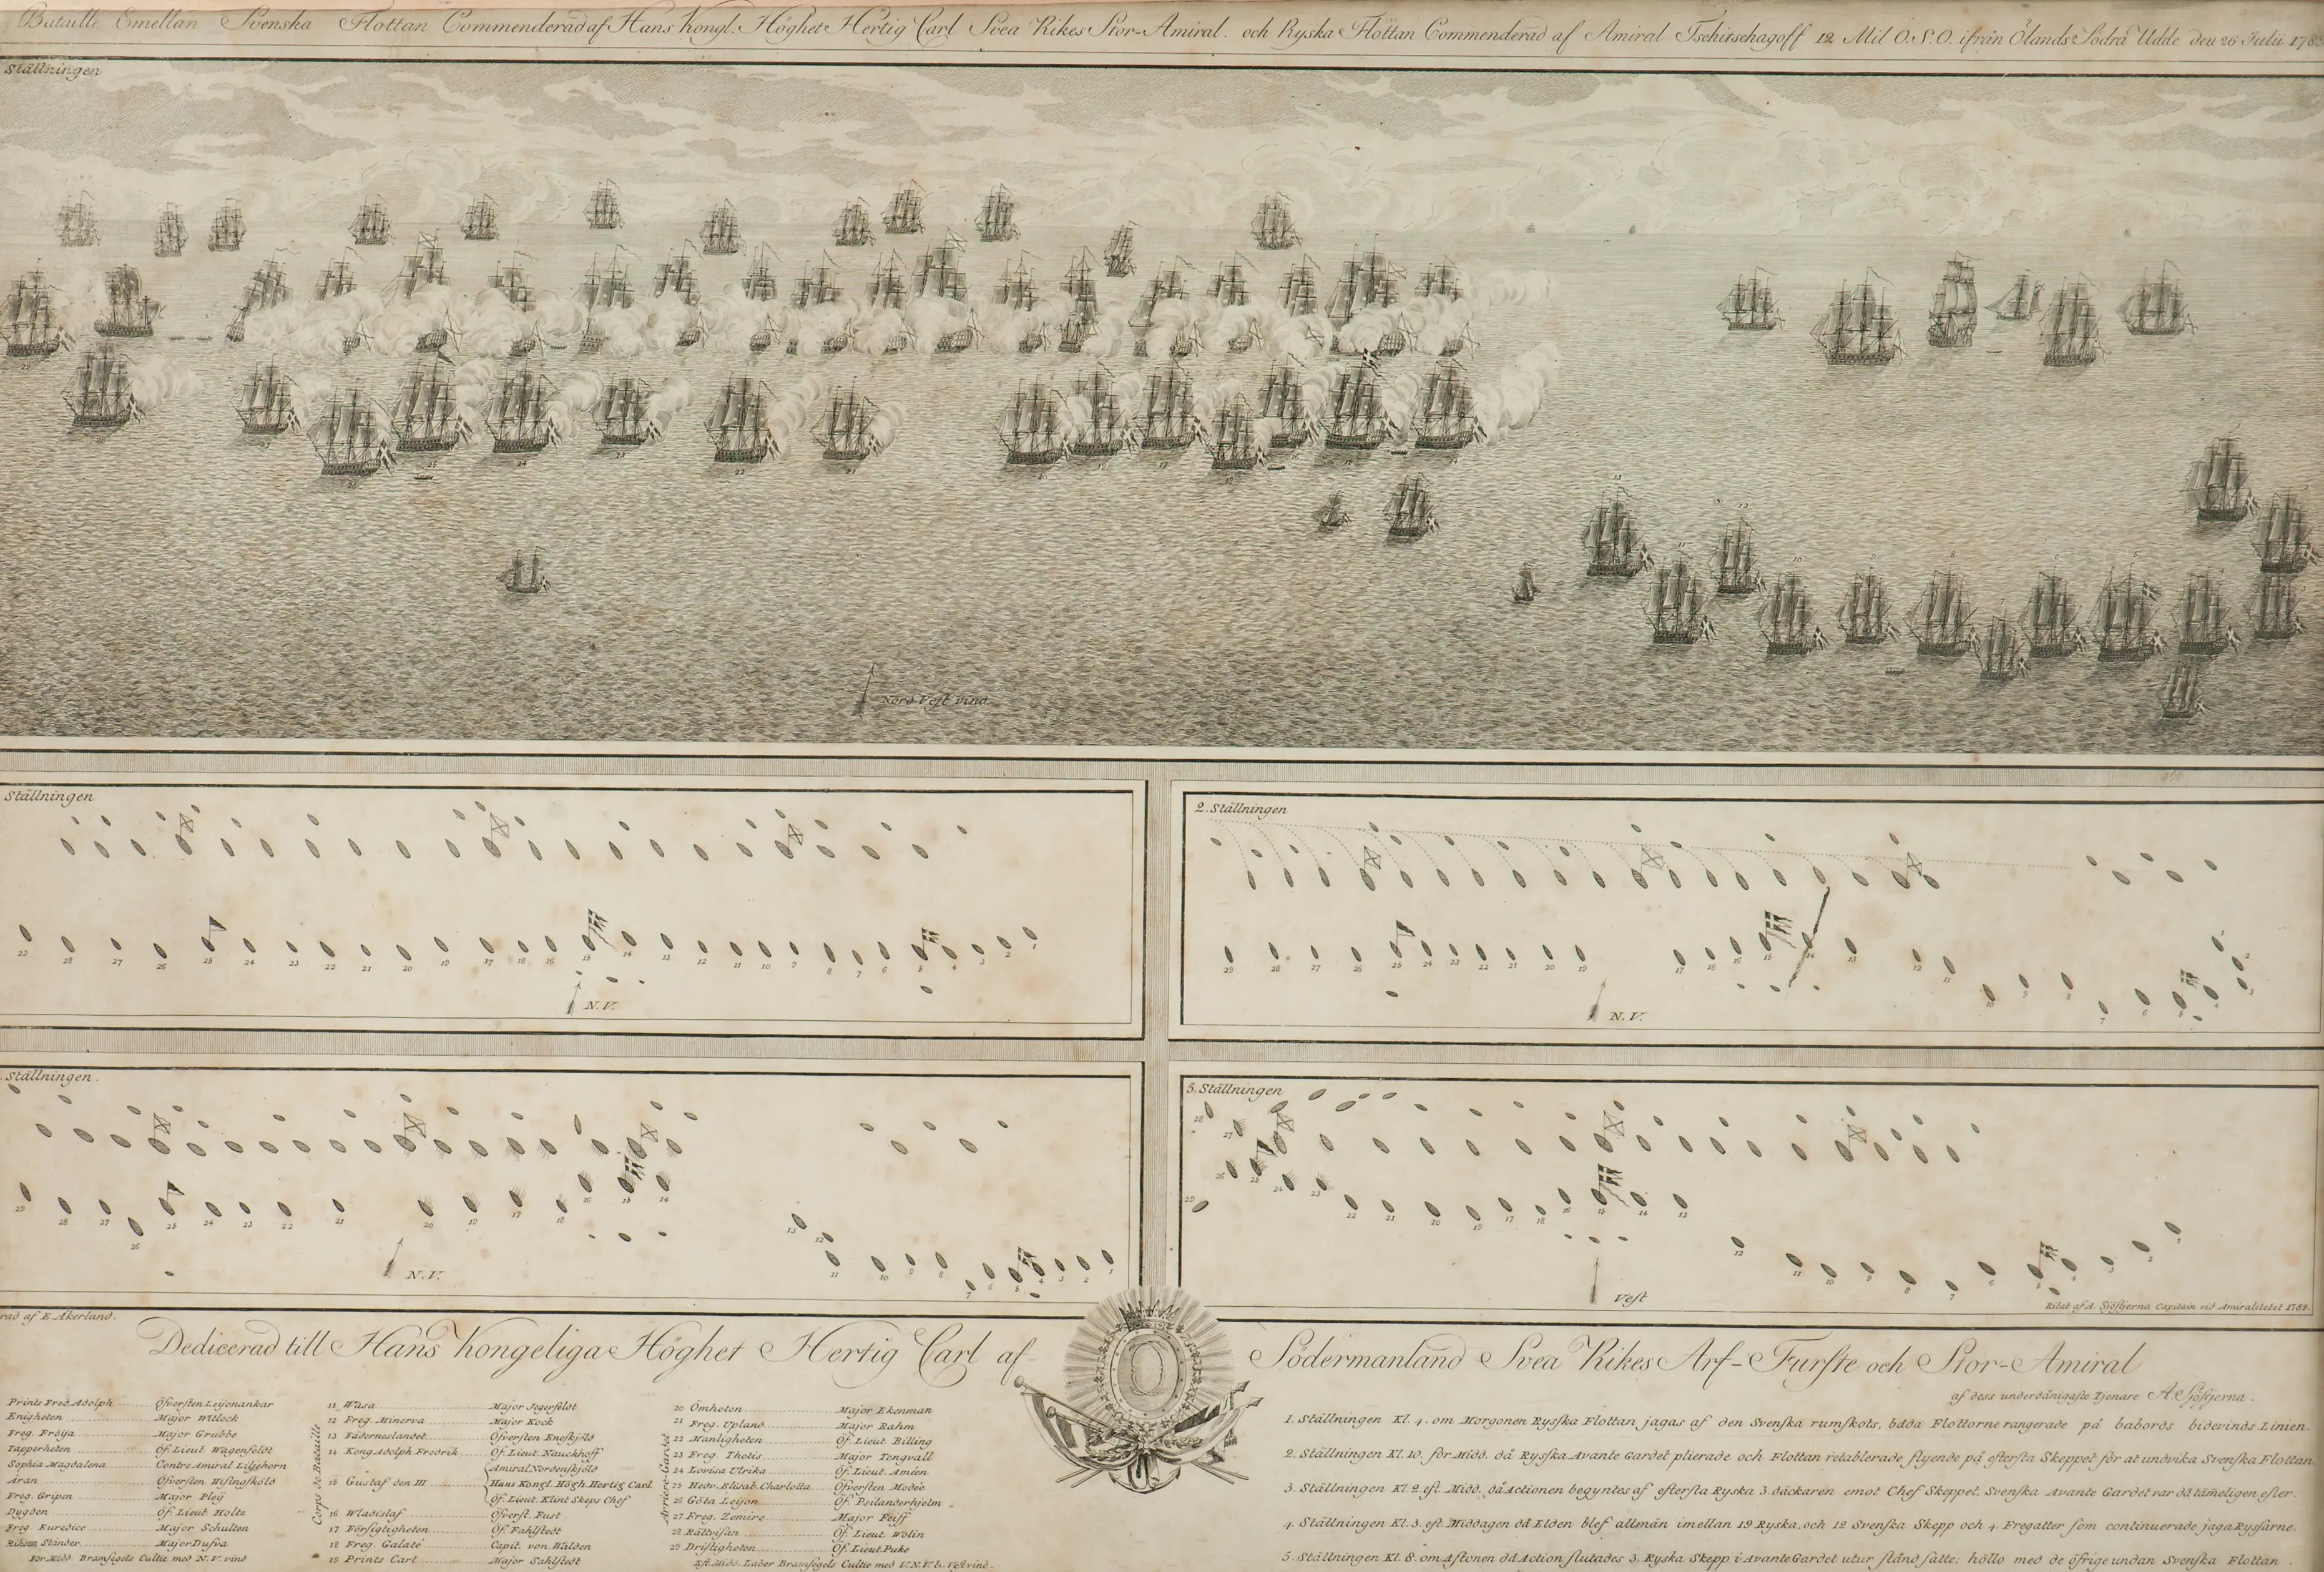 Bataille Emellan Svenska Flottan Commenderad af Hans Kongl. Höghet Hertig Carl Svea Rikes Stor-Amiral. och Ryska Flottan Commenderad af Amiral Tschitschagoff 12 Mil O.S.O. ifrån Ölands Södra Udde den 26 Julii 178
Ställningen
Nord Vest vind
Ställningen
2. Ställningen
N.V.
N.V.
Ställningen.
5. Ställningen
N.V.
Vest
rad af E. Åkerlund.
Ritat af A. Sjöstjerna Capitain vid Amiralitetet 1789.
Dedicerad till Hans Kongeliga Höghet Hertig Carl af Södermanland Svea Rikes Arf-Furste och Stor-Amiral
af dess underdånigaste Tjenare A Sjöstjerna.
Prints Fred. Adolph Öfversten Leijonankar
Enigheten Major Witlock
Freg. Fröija Major Grubbe
Tapperheten Öf. Lieut. Wagenfeldt
Sophia Magdalena Contre Amiral Liljehorn
Äran Öfversten Histingskjöld
Freg. Gripen Major Pleÿ
Dygden Öf. Lieut. Holtz
Freg. Euredice Major Schulten
Riksens Ständer Major Dufva
För Midd. Bramsegels Cultie med N.V. vind
Corps de Bataille
11 Wasa Major Segerfeldt
12 Freg. Minerva Major Kock
13 Fäderneslandet Öfversten Enefkjöld
14 Kong Adolph Fredrik Öf. Lieut. Nauckhoff
15 Gustaf den III Amiral Nordenskjöld
Hans Kongl. Högh. Hertig Carl
Öf. Lieut. Klint Skeps Chef
16 Wladislaf Öfverst. Fust
17 Försigtigheten Öf. Fahlstedt
18 Freg. Galaté Capit. von Walden
19 Prints Carl Major Sahlstedt
Arriere-Gardet
20 Ömheten Major Ekenman
21 Freg. Upland Major Rahm
22 Manligheten Öf. Lieut. Billing
23 Freg. Thetis Major Tengvall
24 Lovisa Ulrika Öf. Lieut. Améen
25 Hedv. Elisab. Charlotta Öfversten Modée
26 Göta Leijon Öf. Psilanderhjelm
27 Freg. Zemire Major Feiff
28 Rättvisan Öf. Lieut. Wolin
29 Dristigheten Öf. Lieut. Puke
Eft. Midd. Laber Bramsegels Cultie med V.N.V. & Vest vind.
1. Ställningen Kl. 4. om Morgonen Rysska Flottan jagas af den Svenska rumskots, båda Flottorne rangerade på babords bidevinds Linien.
2. Ställningen Kl. 10. för Midd. då Rysska Avante Gardet plierade och Flottan retablerade flyende på eftersta Skeppet för at undvika Svenska Flottan
3. Ställningen Kl. 2. eft. Midd. då Actionen begyntes af eftersta Ryska 3. däckaren emot Chef Skeppet, Svenska Avante Gardet var då tämeligen efter.
4. Ställningen Kl. 3. eft. Middagen då Elden blef allmän imellan 19 Ryska, och 12 Svenska Skepp och 4. Fregatter som continuerade jaga Ryssarne.
5. Ställningen Kl. 8. om Aftonen då Action slutades 3. Ryska Skepp i Avante Gardet utur stånd satte: höllo med de öfrige undan Svenska Flottan.